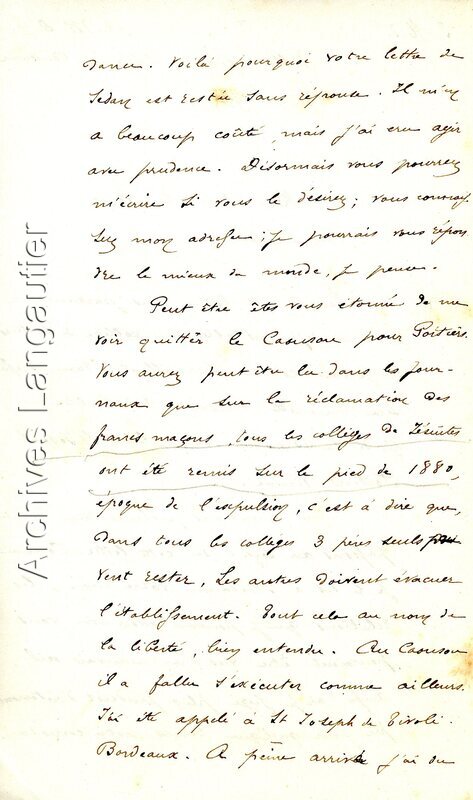 dance. Voilà pourquoi votre lettre de
Sedan est restée sans réponse. Il m'en
a beaucoup coûté, mais j'ai cru agir
avec prudence. Désormais vous pourrez
m'écrire si vous le désirez; vous connais-
sez mon adresse; je pourrais vous répon
dre le mieux du monde, je pense.
Peut être êtes vous étonné de me
voir quitter le Caousou pour Poitiers.
Vous aurez peut être lu dans les jour-
naux que sur la réclamation des
francs maçons, tous les collèges de Jésuites
ont été remis sur le pied de 1880,
époque de l'expulsion, c'est à dire que,
dans tous les collèges 3 pères seuls peu
vent rester, les autres doivent évacuer
l'établissement. Tout cela au nom de
la liberté, bien entendu. Au Caousou
il a fallu s'exécuter comme ailleurs.
J'ai été appelé à St Joseph de Tivoli.
Bordeaux. A peine arrivé j'ai du
Archives Langautier